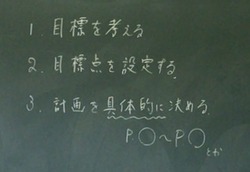 1. 目標を考える
2. 目標点を設定する.
3. 計画を具体的に決める.
P.○〜P.○
とか